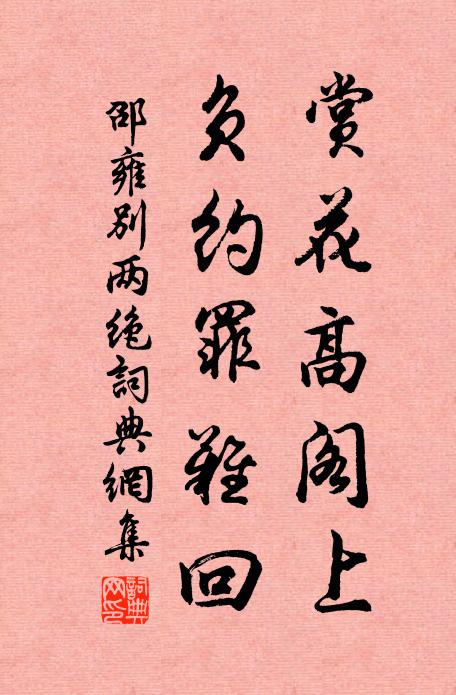 赏花高阁上
负约罪难回
邵雍别两绝词典網集
詞典网印